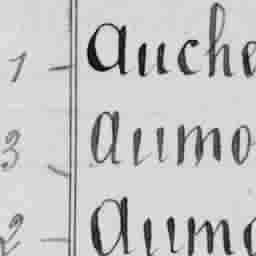 1 — Auche
3 Aumo
2 — Aumo